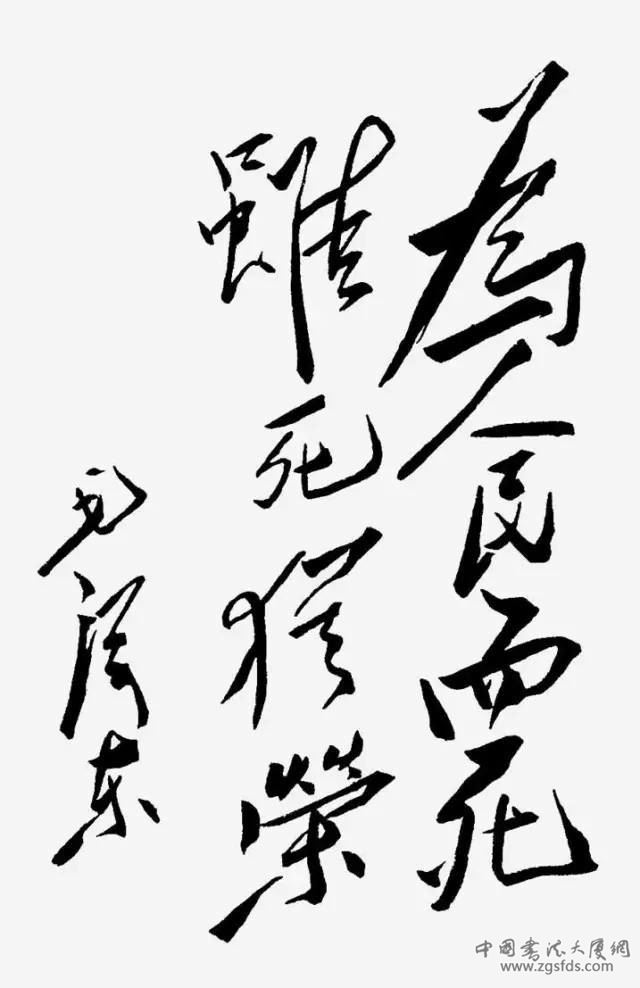 為人民而死
雖死猶榮
毛澤东
中国书法大厦網
www.zgsfds.com